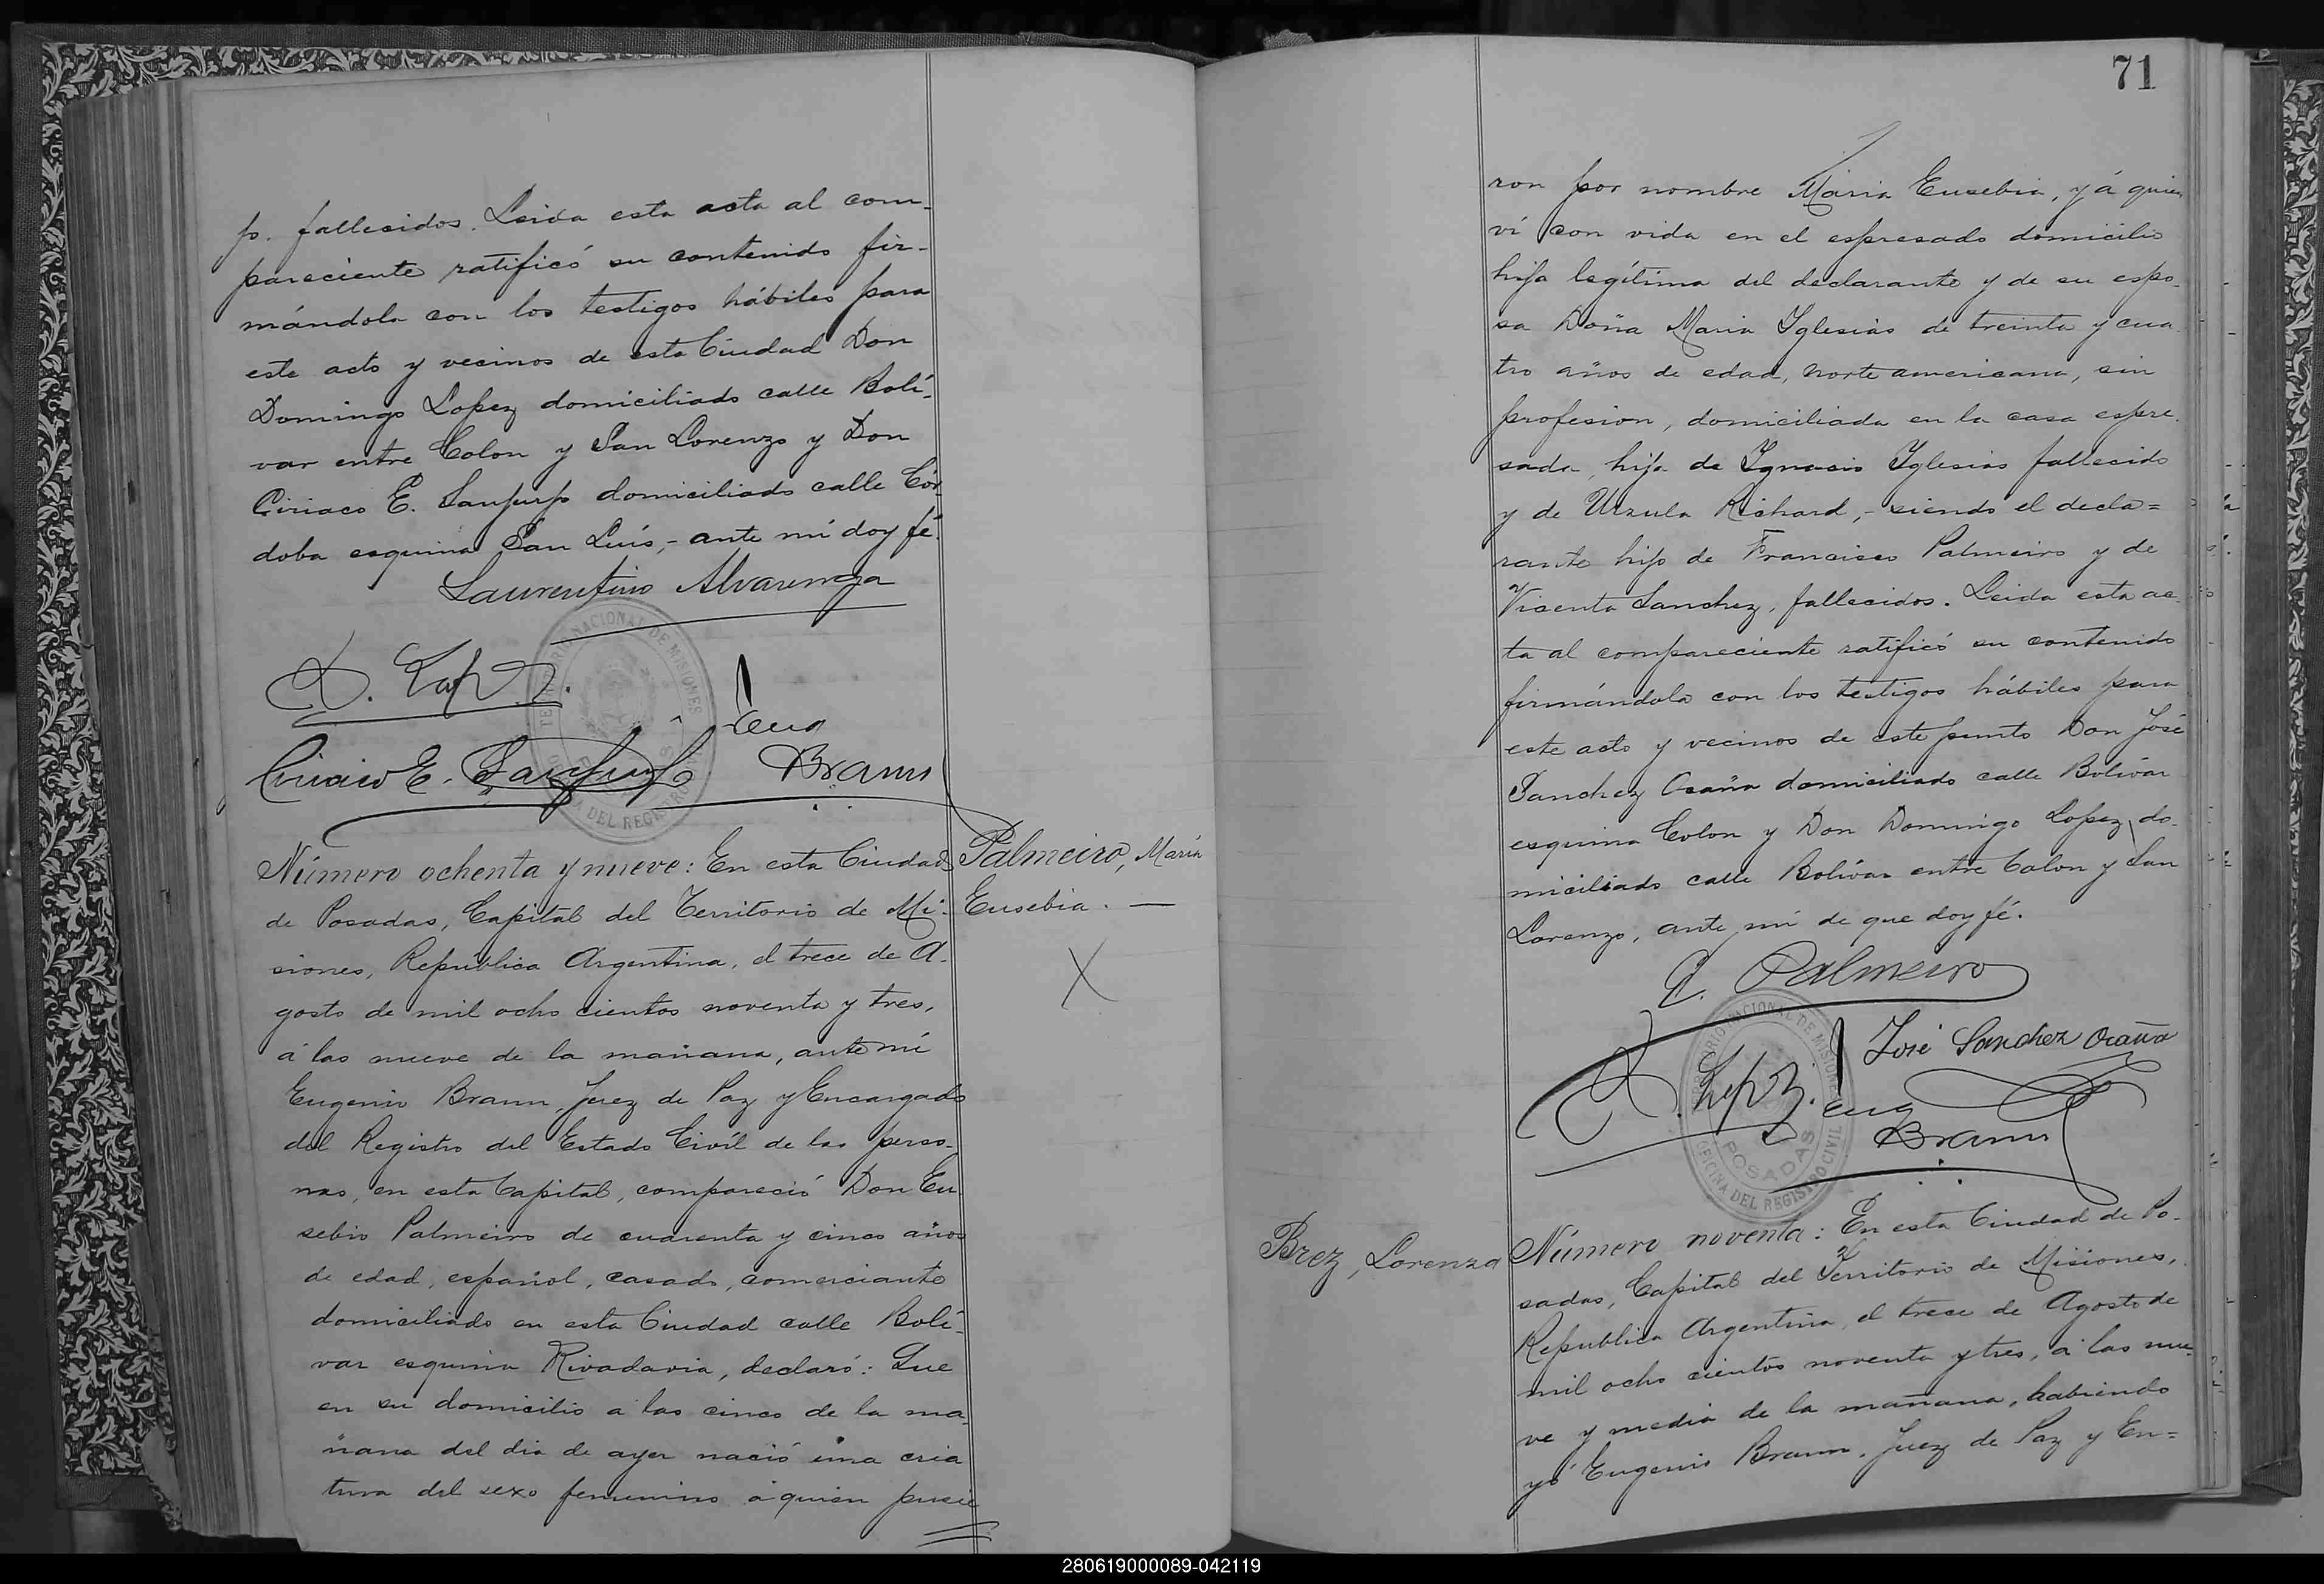 p. fallecidos. Leida esta acta al com-
pareciente ratificó su contenido fir-
mándola con los testigos hábiles para
este acto y vecinos de esta Ciudad Don
Domingo Lopez domiciliado calle Bolí-
var entre Colon y San Lorenzo y Don
Ciriaco E. Sanjurjo domiciliado calle Cór
doba esquina San Luis,- ante mí doy fé.
Laurentino Alvarenga
D. Lopez.
Eug
Ciriaco E. Sanjurjo Braun
TERRITORIO NACIONAL DE MISIONES
OFICINA DEL REGISTRO CIVIL
Palmeiro, Maria
Eusebia. —
Número ochenta y nueve: En esta Ciudad
de Posadas, Capital del Territorio de Mi-
siones, República Argentina, el trece de A-
gosto de mil ocho cientos noventa y tres,
á las nueve de la mañana, ante mí
Eugenio Braun, Juez de Paz y Encargado
del Registro del Estado Civíl de las perso-
nas, en esta Capital, compareció Don Eu
sebio Palmeiro de cuarenta y cinco años
de edad, español, casado, comerciante
domiciliado en esta Ciudad calle Bolí-
var esquina Rivadavia, declaró: Que
en su domicilio a las cinco de la ma-
ñana del dia de ayer nació una cria
tura del sexo femenino á quien pusie
71
ron por nombre Maria Eusebia, y á quien
ví con vida en el espresado domicilio
hija legítima del declarante y de su espo-
sa Doña Maria Yglesias de treinta y cua
tro años de edad, norte americana, sin
profesion, domiciliada en la casa espre-
sada, hija de Ygnacio Yglesias fallecido
y de Urzula Richard,- siendo el decla=
rante hijo de Francisco Palmeiro y de
Vicenta Sanchez, fallecidos. Leida esta ac-
ta al compareciente ratificó su contenido
firmándola con los testigos hábiles para
este acto y vecinos de este punto Don José
Sanchez Ocaña domiciliado calle Bolívar
esquina Colon y Don Domingo Lopez do-
miciliado calle Bolívar entre Colon y San
Lorenzo, ante mí de que doy fé.
E. Palmeiro
José Sanchez Ocaña
D. Lopez.
Eug
Braun
TERRITORIO NACIONAL DE MISIONES
POSADAS
OFICINA DEL REGISTRO CIVIL
Brez, Lorenza
Número noventa: En esta Ciudad de Po-
sadas, Capital del Territorio de Misiones,
Republica Argentina, el trece de Agosto de
mil ocho cientos noventa y tres, á las nue-
ve y media de la mañana, habiendo
yo Eugenio Braun, Juez de Paz y En=
280619000089-042119